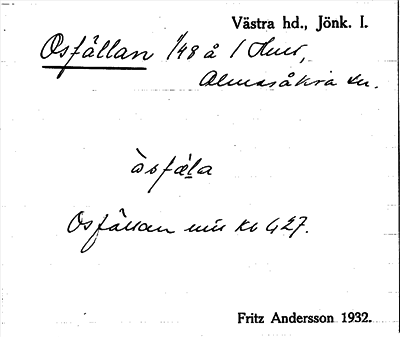 Västra hd., Jönk. l.
Osfällan 1/48 å 1 Hue,
Almesåkra sn.
òsfä̀la
Osfällan
Fritz Andersson 1932.